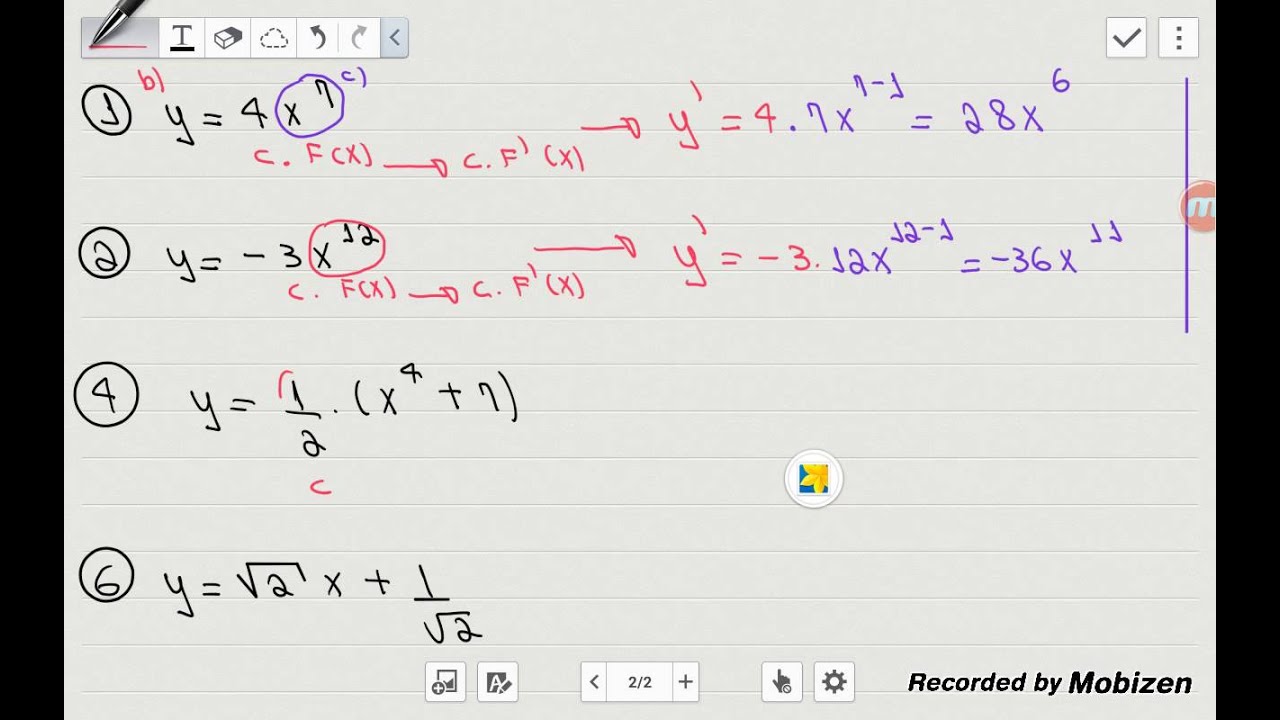 T
b) c)
① y = 4x⁷ → y' = 4.7x⁷⁻¹ = 28x⁶
c. F(x) → c. F'(x)
② y = -3x¹² → y' = -3.12x¹²⁻¹ = -36x¹¹
c. F(x) → c. F'(x)
④ y = 1/2 . (x⁴ + 7)
c
⑥ y = √2 x + 1/√2
2/2
Recorded by Mobizen